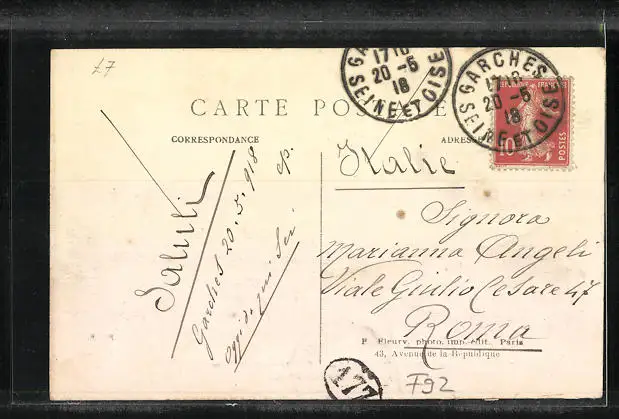 £7
CARTE POSTALE
CORRESPONDANCE
ADRESSE
GARCHES
17 18
20 -5
18
SEINE ET OISE
GARCHES
17 18
20 -5
18
SEINE ET OISE
REPUBLIQUE FRANÇAISE
10
POSTES
Saluti
Garches 20.5.918
Italie
Signora
Marianna Angeli
Viale Giulio Cesare 47
Roma
F. Fleury, photo. imp. édit. Paris
43, Avenue de la République
F92